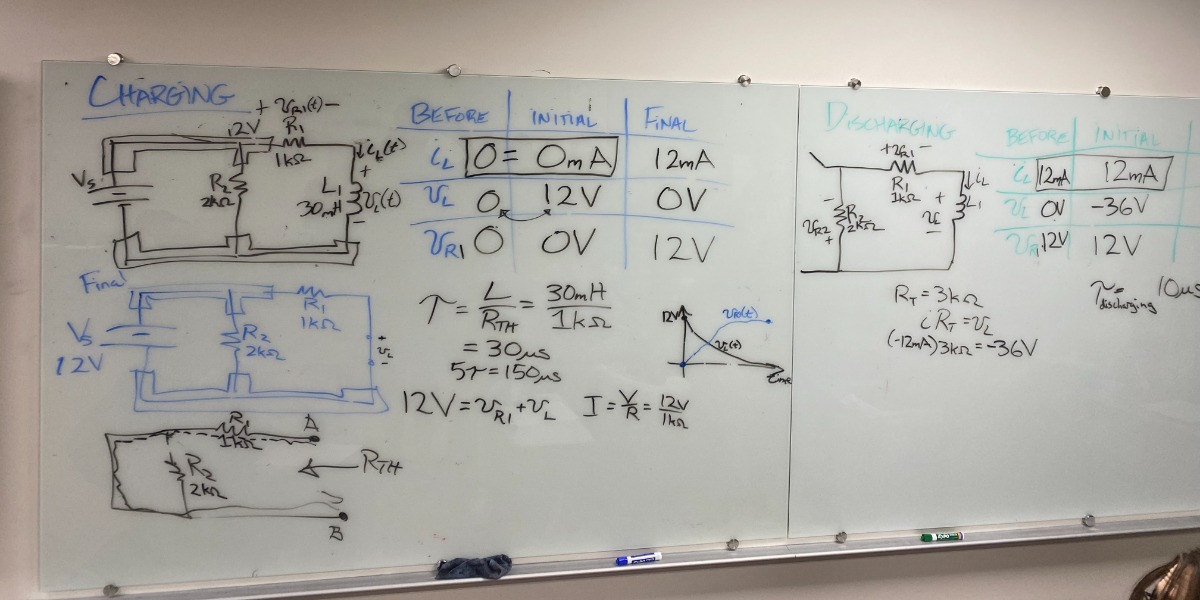 CHARGING
+ VR1(t) -
12V R1
1kΩ
iL(t)
VS
R2
2kΩ
L1
30mH
+
VL(t)
-
BEFORE INITIAL FINAL
iL 0 = 0mA 12mA
VL 0 12V 0V
VR1 0 0V 12V
Final
R1
1kΩ
VS
12V
R2
2kΩ
+
VL
-
τ = L/RTH = 30mH/1kΩ
= 30μs
5τ = 150μs
12V = VR1 + VL I = V/R = 12V/1kΩ
12V
VR1(t)
VL(t)
time
R1
1kΩ
A
R2
2kΩ
RTH
B
DISCHARGING
+VR1-
R1
1kΩ
iL
-
VR2
+
R2
2kΩ
+
VL
-
L1
BEFORE INITIAL
iL 12mA 12mA
VL 0V -36V
VR1 12V 12V
RT = 3kΩ
iRT = VL
(-12mA)3kΩ = -36V
τdischarging = 10μs
EXPO